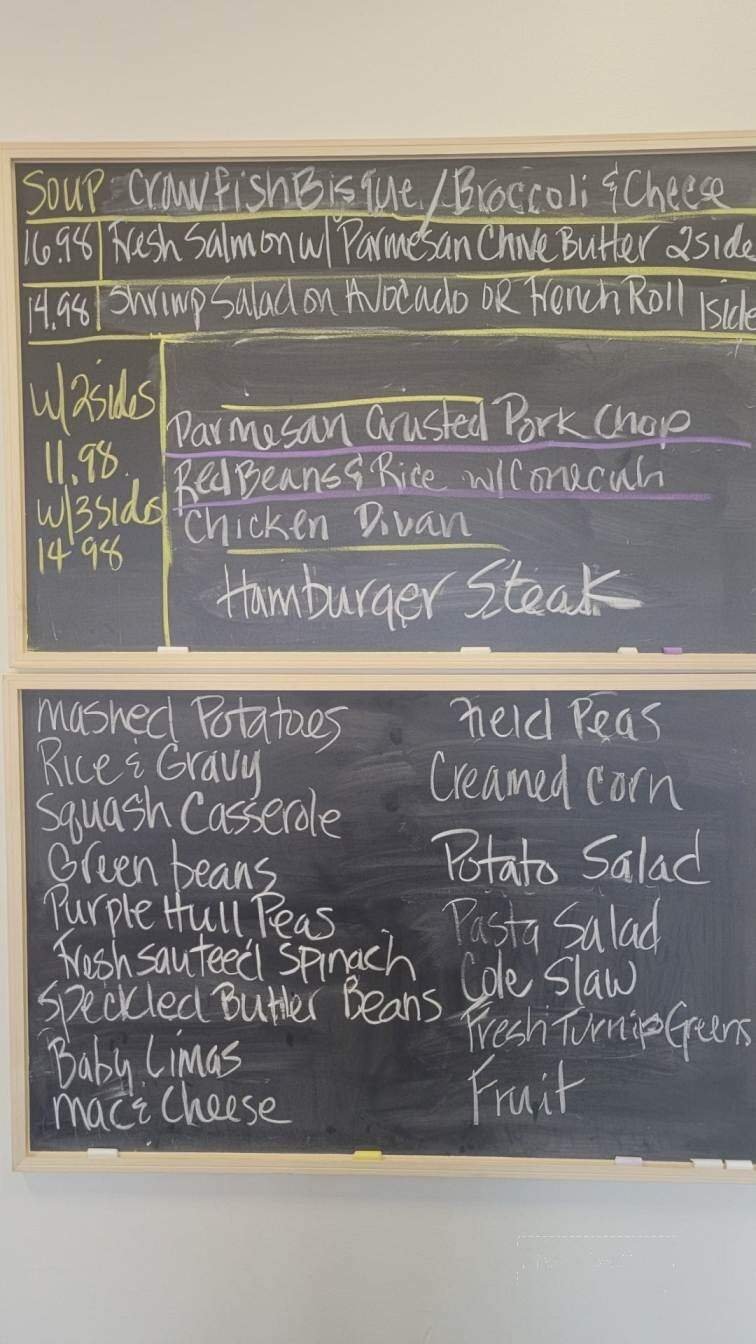 Soup Crawfish Bisque / Broccoli & Cheese
16.98 Fresh Salmon w/ Parmesan Chive Butter 2side
14.98 Shrimp Salad on Avocado OR French Roll 1side
w/2sides
11.98
w/3sides
14.98
Parmesan Crusted Pork Chop
Red Beans & Rice w/Conecuh
Chicken Divan
Hamburger Steak
Mashed Potatoes
Rice & Gravy
Squash Casserole
Green beans
Purple Hull Peas
Fresh sauteed spinach
Speckled Butter Beans
Baby Limas
mac & Cheese
Field Peas
Creamed corn
Potato Salad
Pasta Salad
Cole Slaw
Fresh Turnip Greens
Fruit